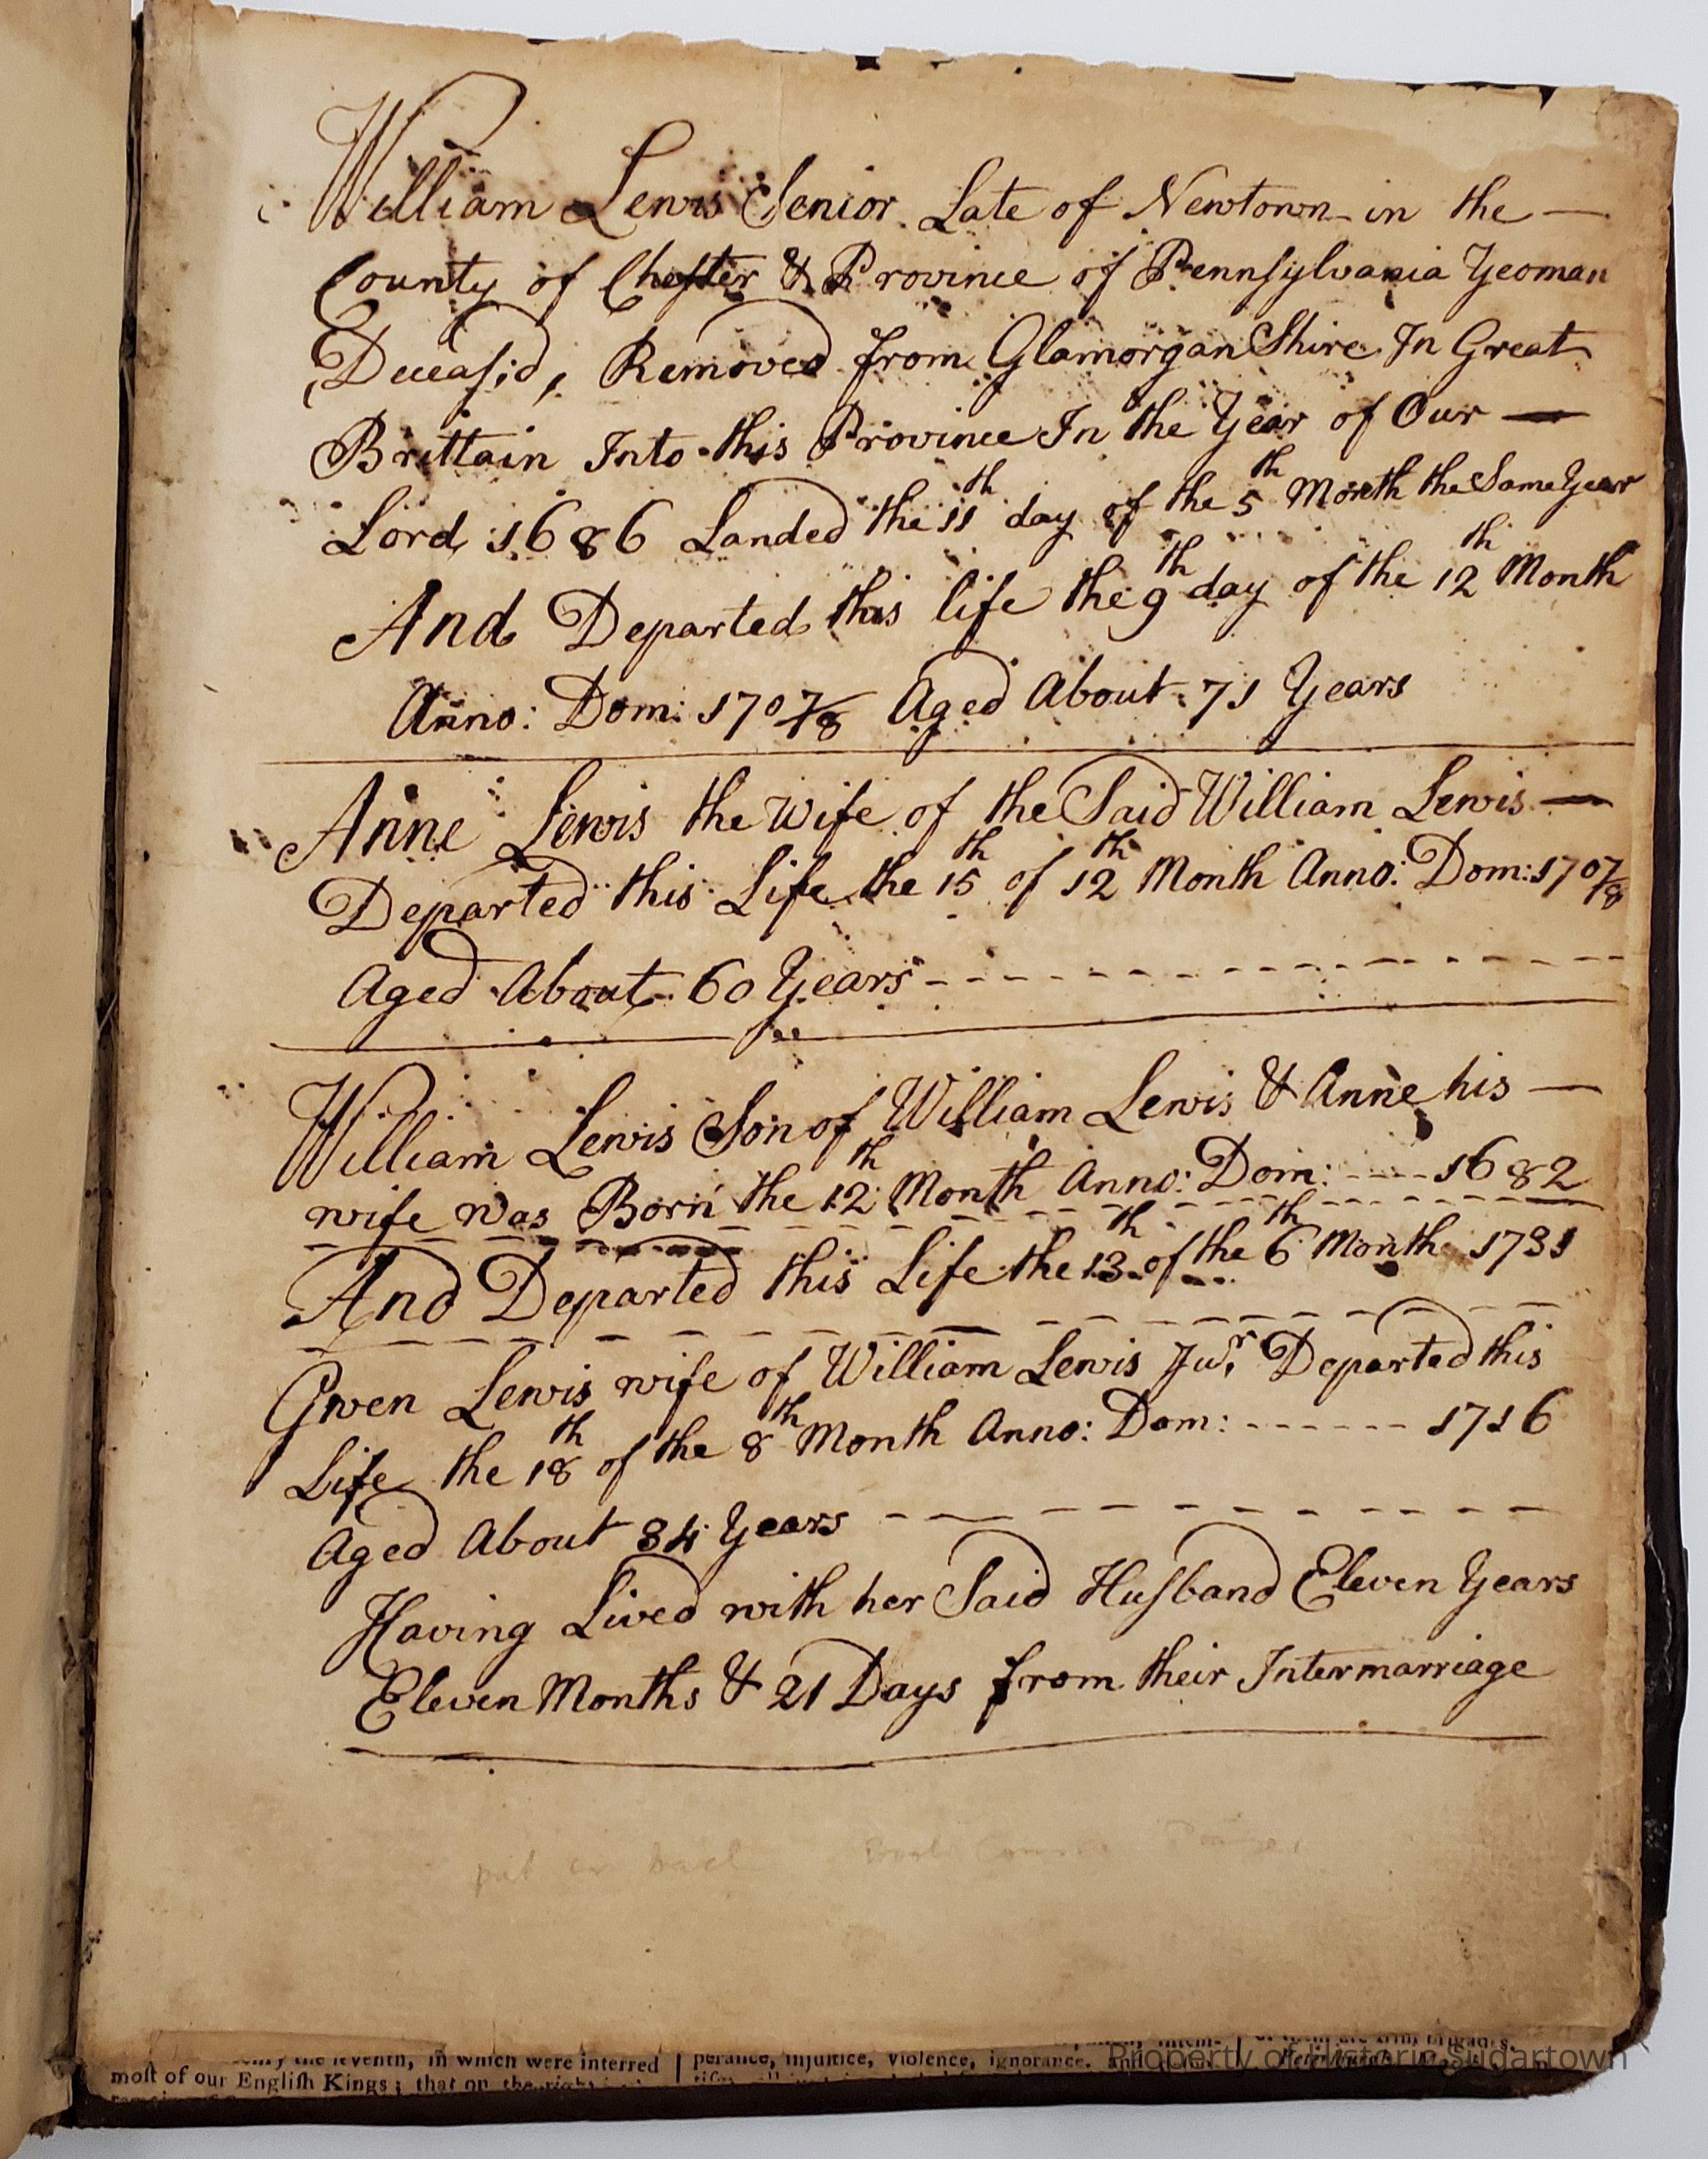 William Lewis Senior Late of Newtown in the —
County of Chester & Province of Pennsylvania Yeoman
Deceasid, Removed from Glamorgan Shire In Great
Brittain Into this Province In the Year of Our —
Lord 1686 Landed the 11th day of the 5th Month the Same Year
And Departed this life the 9th day of the 12th Month
Anno: Dom: 1707/8 Aged About 71 Years
Anne Lewis the Wife of the Said William Lewis —
Departed this Life the 15th of 12th Month Anno: Dom: 1707/8
Aged About 60 Years - - - - - - - - - - -
William Lewis Son of William Lewis & Anne his —
wife was Born the 12th Month Anno: Dom: ---- 1682
And Departed this Life the 13th of the 6th Month 1731
Gwen Lewis wife of William Lewis Junr Departed this
Life the 18th of the 8th Month Anno: Dom: ------ 1716
Aged About 34 Years - - - - - - - - - -
Having Lived with her Said Husband Eleven Years
Eleven Months & 21 Days from their Intermarriage
the seventh, in which were interred
most of our English Kings; that on the right
perance, injustice, violence, ignorance, and
Property of Historic Sugartown